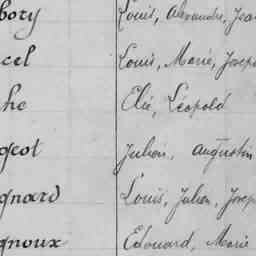 bory Louis, Alexandre, Jean
cel Louis, Marie, Joseph
che Elie, Léopold
geot Julien, Augustin
gnard Louis, Julien, Joseph
gnoux Edouard, Marie